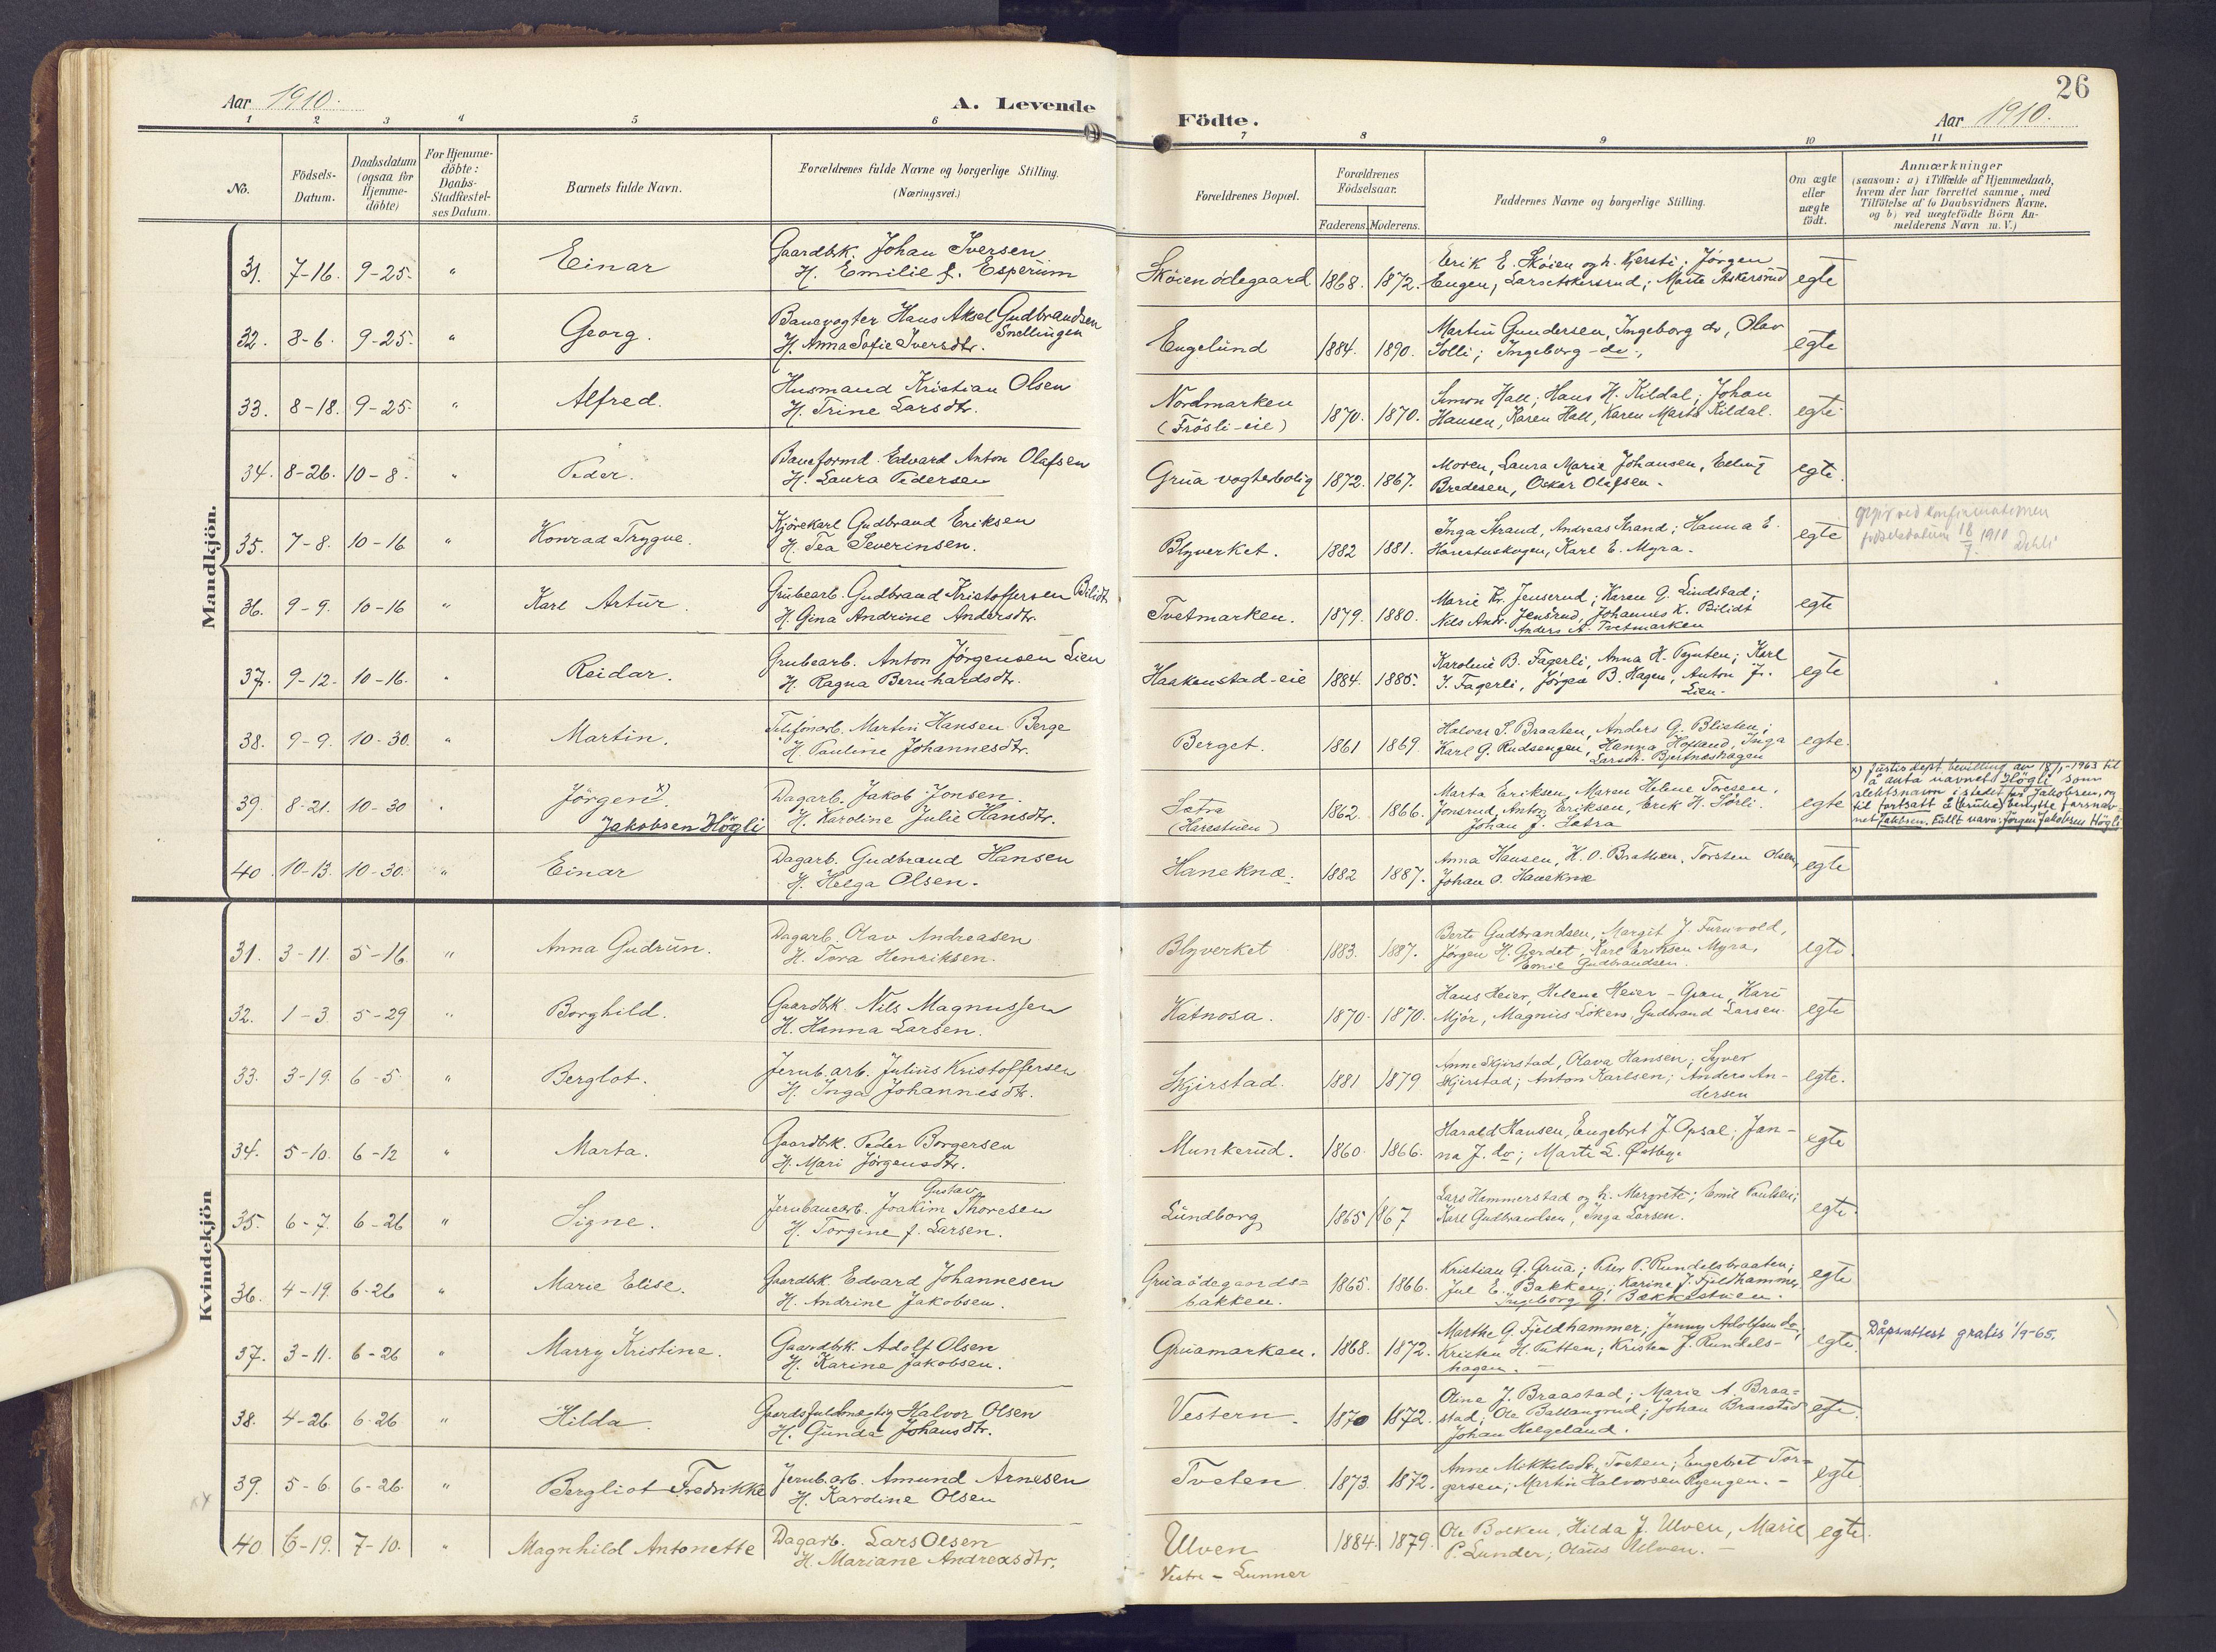 26
Aar 1910.
A. Levende Födte.
Aar 1910.
1 2 3 4 5 6 7 8 9 10 11
No.
Födsels-Datum.
Daabsdatum (ogsaa for Hjemme-döbte)
For Hjemme-döbte: Daabs-Stadfæstel-ses Datum.
Barnets fulde Navn.
Forældrenes fulde Navne og borgerlige Stilling. (Næringsvei.)
Forældrenes Bopæl.
Forældrenes Födselsaar.
Faderens. Moderens.
Faddernes Navne og borgerlige Stilling.
Om ægte eller uægte födt.
Anmærkninger
(saasom: a) i Tilfælde af Hjemmedaab,
hvem der har forrettet samme, med
Tilföielse af to Daabsvidners Navne,
og b) ved uægtefödte Börn An-
melderens Navn m. V.)
Mandkjön.
31. 7-16. 9-25. " Einar
Gaardbk. Johan Iversen
H. Emilie f. Esperum
Sköienödegaard 1868. 1872.
Erik E. Sköien og h. Kjersti; Jörgen
Engen, Lars Askersrud; Marte Askersrud
egte
32. 8-6. 9-25. " Georg.
Banevogter Hans Aksel Gudbrandsen
Snellingen
H. Anna Sofie Iversdtr.
Engelund 1884. 1890.
Martin Gundersen, Ingeborg do, Olav
Solli; Ingeborg do.,
egte
33. 8-18. 9-25. " Alfred.
Husmand Kristian Olsen
H. Trine Larsdtr.
Nordmarken
(Frösli-eie)
1870. 1870.
Simon Hall; Hans H. Kildal; Johan
Hansen, Karen Hall, Karen Marts Kildal.
egte
34. 8-26. 10-8. " Peder.
Baneformd. Edvard Anton Olafsen
H. Laura Pedersen
Grua vogterbolig 1872. 1867.
Moren, Laura Marie Johansen,
Bredesen, Oskar Olafsen.
egte.
35. 7-8. 10-16 " Konrad Trygve.
Kjörekarl Gudbrand Eriksen
H. Tea Severinsen.
Blyverket. 1882 1881.
Inga Strand, Andreas Strand; Hanna E.
Harestuskogen, Karl E. Myra.
egte
ved konfirmationen
födselsdatum 18/7 1910
36. 9-9. 10-16 " Karl Artur.
Grubearb. Gudbrand Kristoffersen Bilidt
H. Gina Andrine Andersdtr.
Tvetmarken. 1879. 1880.
Marie Kr. Jenserud; Karen G. Lindstad;
Nils Andr. Jensrud, Johannes K. Bilidt
Anders A. Tvetmarken
egte
37. 9-12. 10-16. " Reidar.
Grubearb. Anton Jörgensen Lien
H. Ragna Bernhardsdtr.
Haakenstad-eie 1884. 1885.
Karoline B. Fagerli, Anna H. Pynten; Karl
J. Fagerli, Jörgen B. Hagen, Anton J.
Lien.
egte
38. 9-9. 10-30. " Martin.
Telefonarb. Martin Hansen Berge
H. Pauline Johannesdtr.
Berget. 1861 1869.
Halvor S. Braaten, Anders G. Blistein;
Karl G. Rudsengen, Hanna Hofland, Inga
Larsdtr. Bjertnæshagen
egte.
39. 8-21. 10-30 " Jörgen x)
Jakobsen Högli
Dagarb. Jakob Jonsen.
H. Karoline Julie Hansdtr.
Sætra
(Harestuen)
1862. 1866.
Marta Eriksen, Maren Helene Toresen,
Jonsrud, Anton Eriksen, Erik H. Sörli.
Johan J. Sætra
egte
x) Justisdept. bevilling av 18/1-1963 til
å anta navnet Högli som
slektsnavn i stedet for Jakobsen, og
til fortsatt å (bruke) benytte farsnav-
net Jakobsen. Fullt navn: Jörgen Jakobsen Högli
40. 10-13. 10-30. " Einar
Dagarb. Gudbrand Hansen
H. Helga Olsen.
Haneknæ. 1882 1887.
Anna Hansen, H. O. Brathen. Torsten Olsen,
Johan O. Haneknæ
egte
Kvindekjön
31. 3-11. 5-16. " Anna Gudrun.
Dagarb. Olav Andreasen
H. Tora Henriksen.
Blyverket 1883. 1887.
Berte Gudbrandsen, Margit J. Furuvold,
Jörgen H. Gjerdet, Karl Eriksen Myra,
Emil Gudbrandsen.
egte.
32. 1-3 5-29 " Borghild.
Gaardbk. Nils Magnussen
H. Hanna Larsen.
Katnosa. 1870. 1870.
Hans Heier, Helene Heier - Gran, Kari
Mjör, Magnus Löken, Gudbrand Larsen.
egte
33. 3-19. 6-5. " Berglot.
Jernb.arb. Julius Kristoffersen
H. Inga Johannesdtr.
Skjirstad. 1881 1879
Anne Skjirstad, Olava Hansen; Syver
Skjirstad; Anton Karlsen; Anders An-
dersen
egte.
34. 5-10. 6-12 " Marta.
Gaardbk. Peder Borgersen
H. Mari Jörgensdtr.
Munkerud. 1860. 1866.
Harald Hansen, Engebret J. Opsal; Jan-
na J. do; Marte L. Østby.
egte
35. 6-7. 6-26 " Signe.
Gustav
Jernbanearb. Joakim Thoresen
H. Torgine f. Larsen.
Lundborg 1865 1867
Lars Hammerstad og h. Margrete; Emil Paulsen;
Karl Gudbrandsen, Inga Larsen.
egte.
36. 4-19. 6-26 " Marie Elise.
Gaardbk. Edvard Johannesen
H. Andrine Jakobsen.
Gruaödegaards-
bakken.
1865. 1866.
Kristian G. Grua; Peder P. Rundelsbraaten;
Jul E. Bakken; Karine J. Fjeldhammer
Ingeborg G. Bækkestuen.
egte
37. 3-11. 6-26 " Marry Kristine.
Gaardbk. Adolf Olsen
H. Karine Jakobsen.
Gruamarken. 1868. 1872.
Marthe G. Fjeldhammer; Jenny Adolfsen do;
Kristen H. Putten; Kristen J. Rundels-
hagen.
egte.
Dåpsattest gratis 1/9-65.
38. 4-26. 6-26 " Hilda.
Gaardsfuldmægtig Halvor Olsen
H. Gunda Johansdtr.
Vestern. 1870 1872.
Oline J. Braastad; Marie A. Braa-
stad; Ole Ballangrud; Johan Braastad
Johan Helgeland.
egte.
39. 5-6. 6-26. " Bergliot Fredrikke
Jernb.arb. Amund Arnesen
H. Karoline Olsen
Tveten. 1873. 1872.
Anne Mikkelsdtr. Tveten; Engebret Tor-
gersen; Martin Halvorsen Ryengen.
egte
40 6-19. 7-10. " Magnhild Antonette
Dagarb. Lars Olsen
H. Mariane Andreasdtr.
Ulven
Vestre - Lunner
1884. 1879.
Ole Bolken, Hilda J. Ulven, Marie
P. Lunder; Olaus Ulven.
egte.